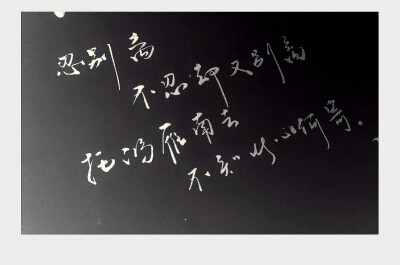 忍别离
不忍却又别离
托鸿雁南去
不知此心何寄。